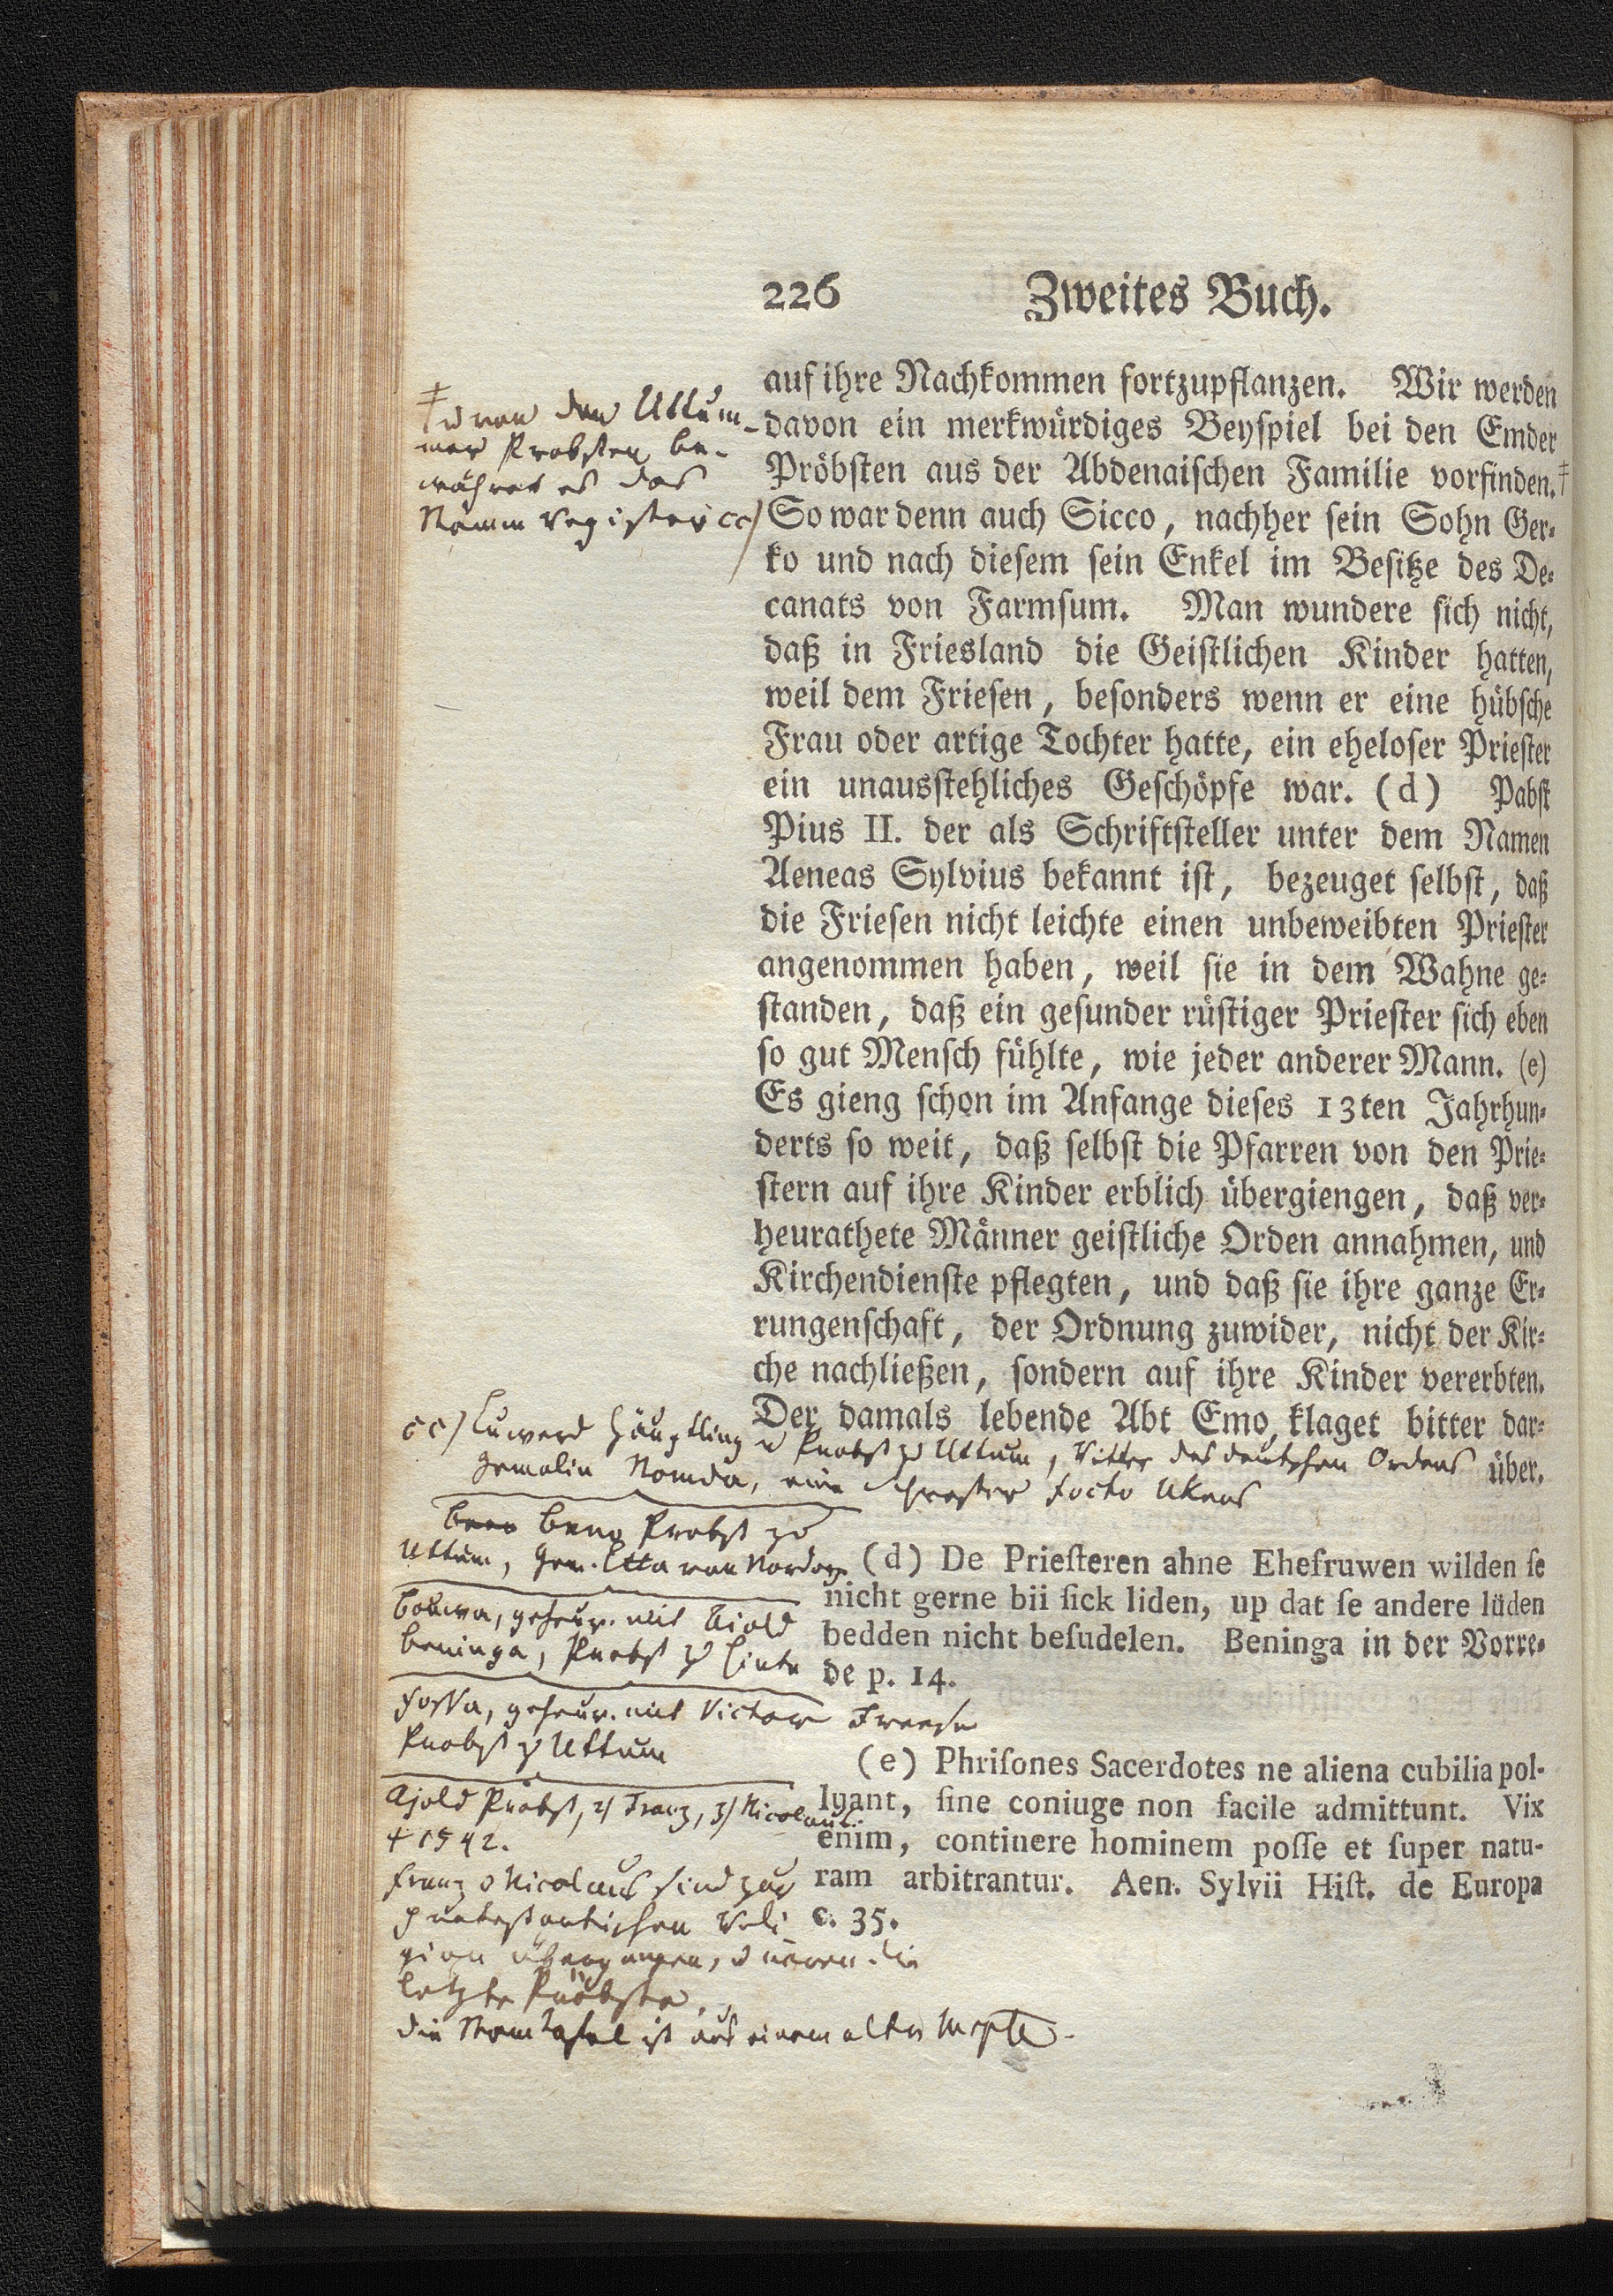 226 Zweites Buch.
auf ihre Nachkommen fortzupflanzen. Wir werden
davon ein merkwürdiges Beyspiel bei den Emder
Pröbsten aus der Abdenaischen Familie vorfinden.‡
So war denn auch Sicco, nachher sein Sohn Ger-
ko und nach diesem sein Enkel im Besitze des De-
canats von Farmsum. Man wundere sich nicht,
daß in Friesland die Geistlichen Kinder hatten,
weil dem Friesen, besonders wenn er eine hübsche
Frau oder artige Tochter hatte, ein eheloser Priester
ein unausstehliches Geschöpfe war. (d) Pabst
Pius II. der als Schriftsteller unter dem Namen
Aeneas Sylvius bekannt ist, bezeuget selbst, daß
die Friesen nicht leichte einen unbeweibten Priester
angenommen haben, weil sie in dem Wahne ge-
standen, daß ein gesunder rüstiger Priester sich eben
so gut Mensch fühlte, wie jeder anderer Mann. (e)
Es gieng schon im Anfange dieses 13ten Jahrhun-
derts so weit, daß selbst die Pfarren von den Prie-
stern auf ihre Kinder erblich übergiengen, daß ver-
heurathete Männer geistliche Orden annahmen, und
Kirchendienste pflegten, und daß sie ihre ganze Er-
rungenschaft, der Ordnung zuwider, nicht der Kir-
che nachließen, sondern auf ihre Kinder vererbten.
Der damals lebende Abt Emo, klaget bitter dar-
über.
(d) De Priesteren ahne Ehefruwen wilden se
nicht gerne bii sick liden, up dat se andere lüden
bedden nicht besudelen. Beninga in der Vorre-
de p. 14.
(e) Phrisones Sacerdotes ne aliena cubilia pol-
luant, sine coniuge non facile admittunt. Vix
enim, continere hominem posse et super natu-
ram arbitrantur. Aen. Sylvii Hist. de Europa
c. 35.
‡ u von den Uttum-
mer Probsten be-
währet es das
Stamm Register cc)
cc) Luward Häuptling u Probst zu Uttum, Ritter des deutschen Ordens
Gemalin Nomda, eine Schwester Focko Ukens
Beno Probst zu
Uttum, Gem. Etta van Norden
Bouwa, geheur. mit Ajold
Beninga, Probst zu Hinte
Fossa, geheur. mit Victor Freese
Probst zu Uttum
Ajold Probst, 2) Franz, 3) Nicolaus.
† 1542.
Franz u Nicolaus sind zur
protestantischen Reli
gion übergangen, u waren die
letzte Pröbste.
die Stamtafel ist aus einem alten Mspte.